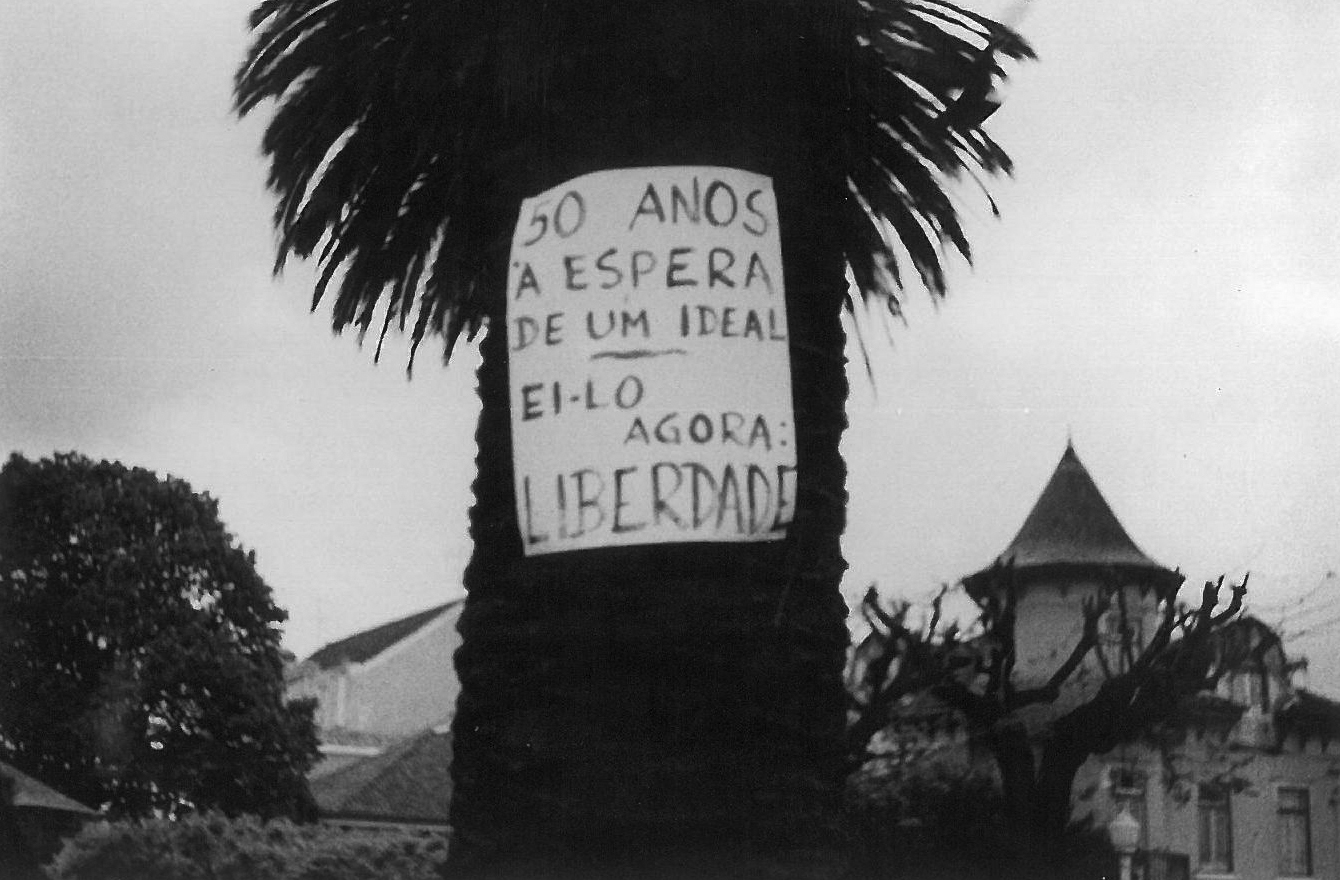 50 ANOS
À ESPERA
DE UM IDEAL
EI-LO
AGORA:
LIBERDADE